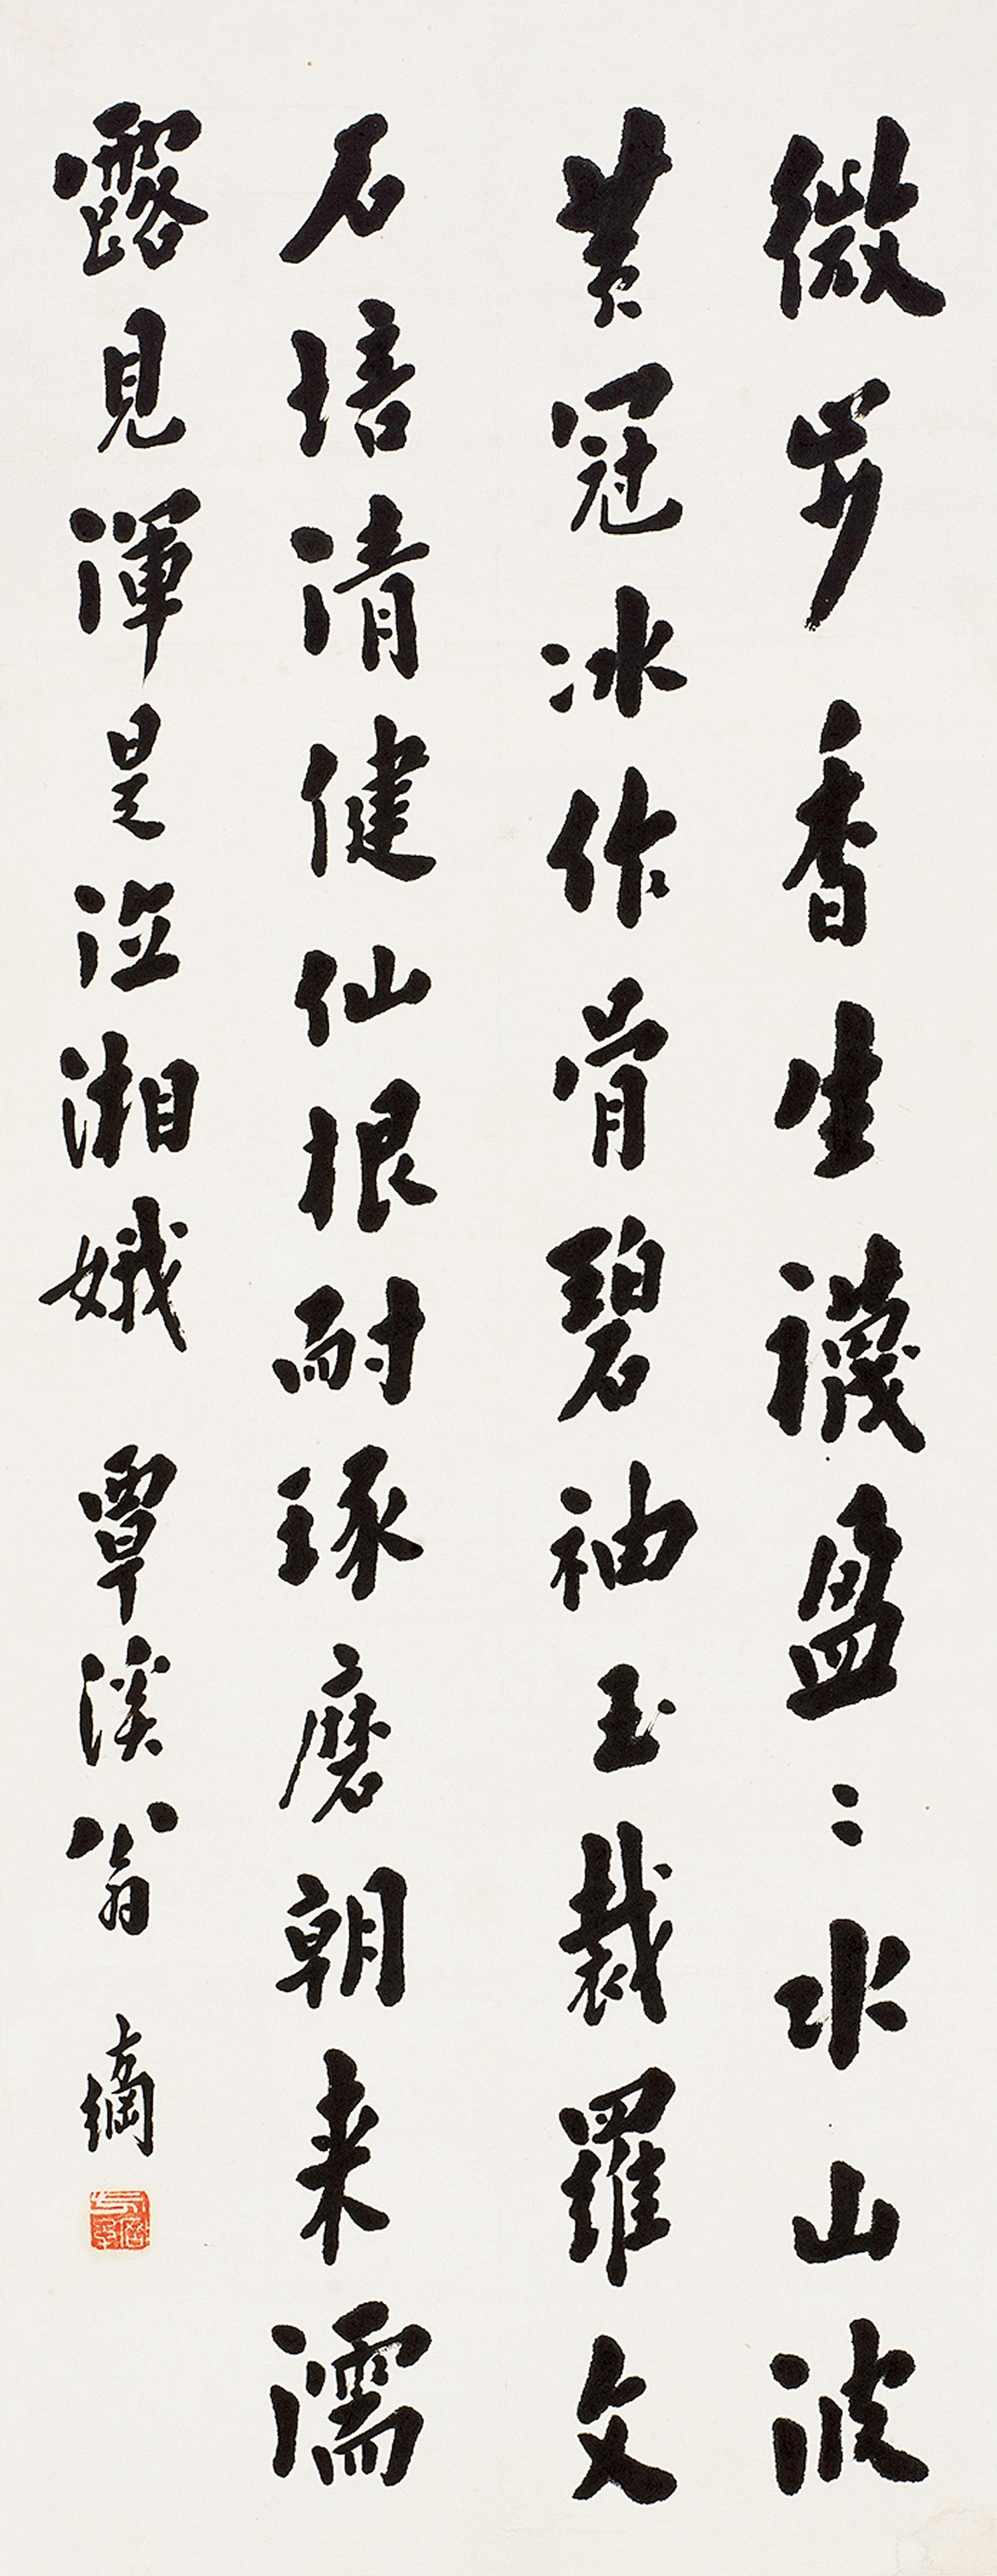 微步香生襪盈〻水山波
黄冠冰作骨碧袖玉裁羅文
石培清健仙根耐琢磨朝来濡
露見渾是泣湘娥 覃溪翁 方綱